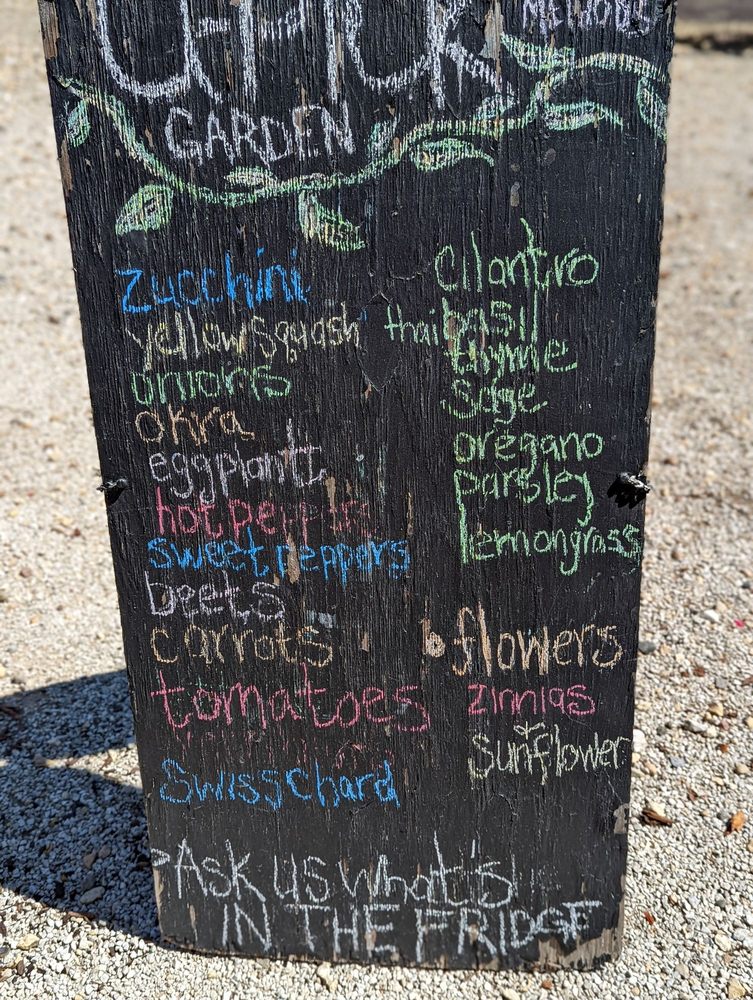 GARDEN
zucchini
yellow squash
onions
okra
eggplant
hot peppers
sweet peppers
beets
carrots
tomatoes
Swiss Chard
Cilantro
thai basil
thyme
sage
oregano
parsley
lemongrass
flowers
zinnias
Sunflower
Ask us what's
IN THE FRIDGE